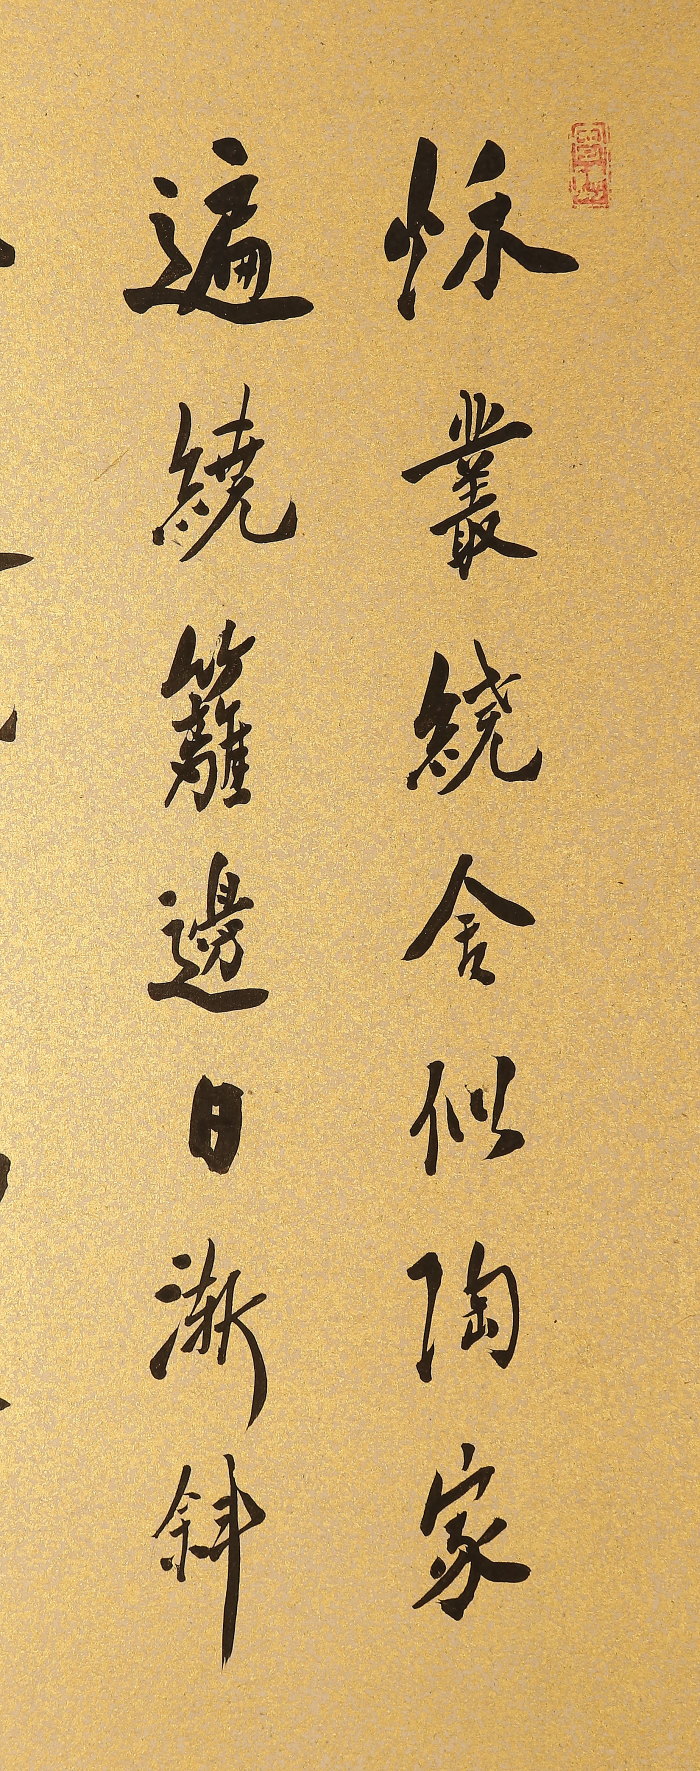 秌叢繞舍似陶家
遍繞籬邊日漸斜